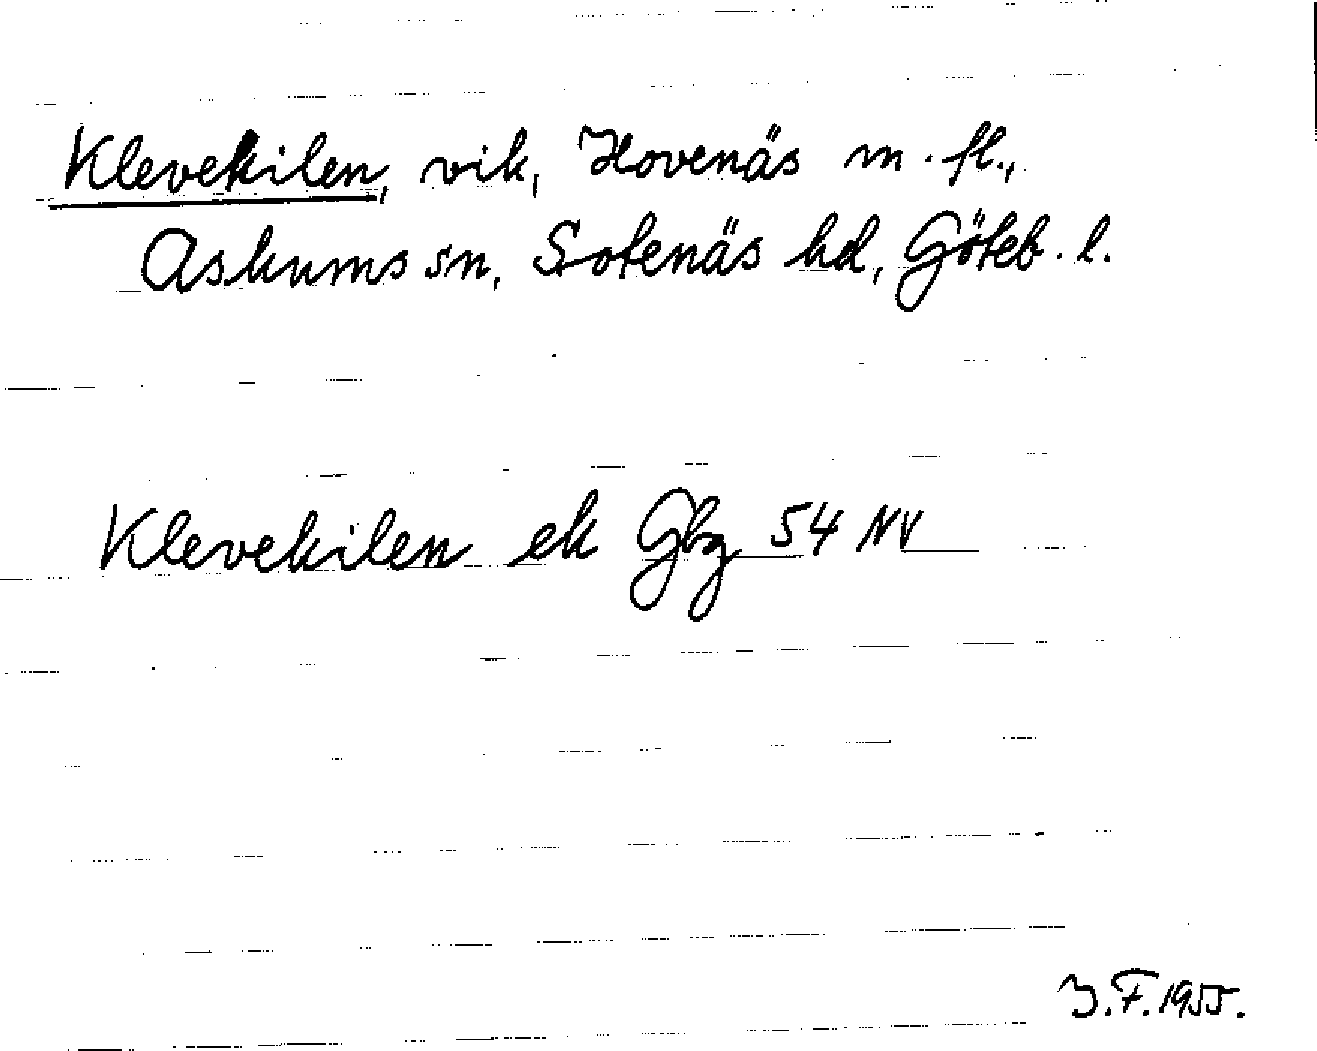 Klevekilen, vik, Hovenäs m. fl.,
Askums sn, Sotenäs hd, Göteb. l.
Klevekilen ek Gbg 54 NV
J.F. 1955.